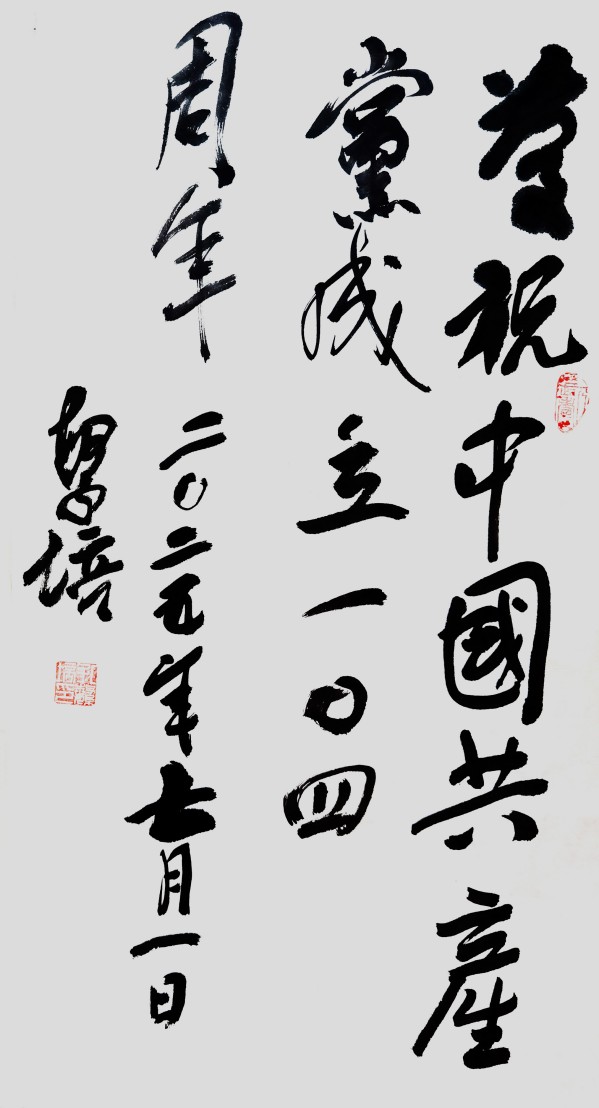 祝中國共產
黨成立一〇四
周年
二〇二五年七月一日
培